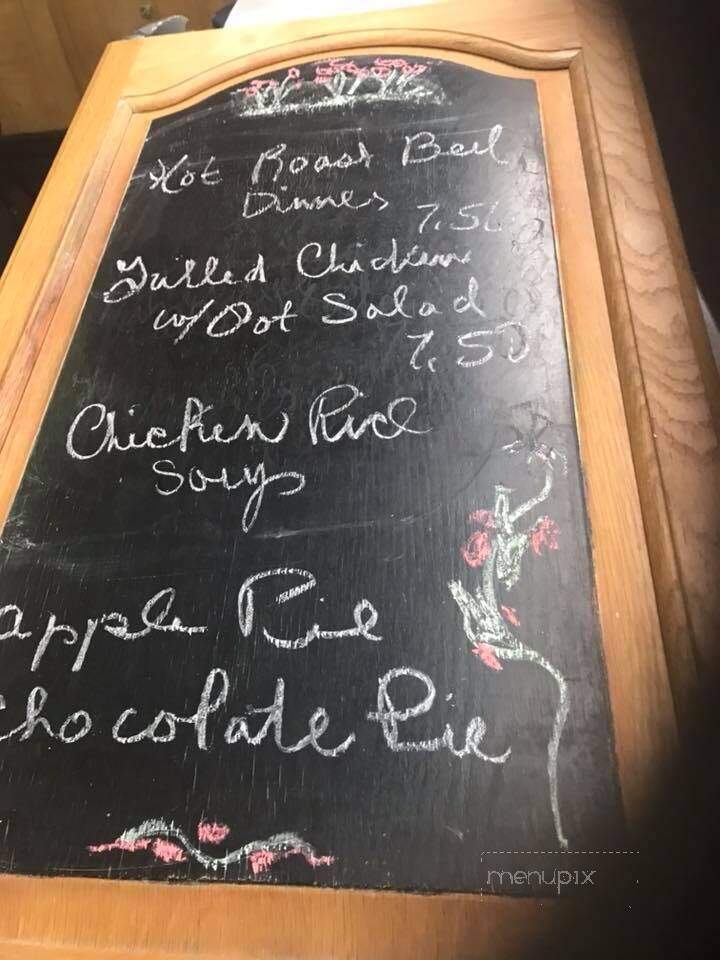 Hot Roast Beef
Dinner 7.50
Grilled Chicken
w/ Pot Salad
7.50
Chicken Rice
Soup
apple Pie
chocolate Pie
menupix